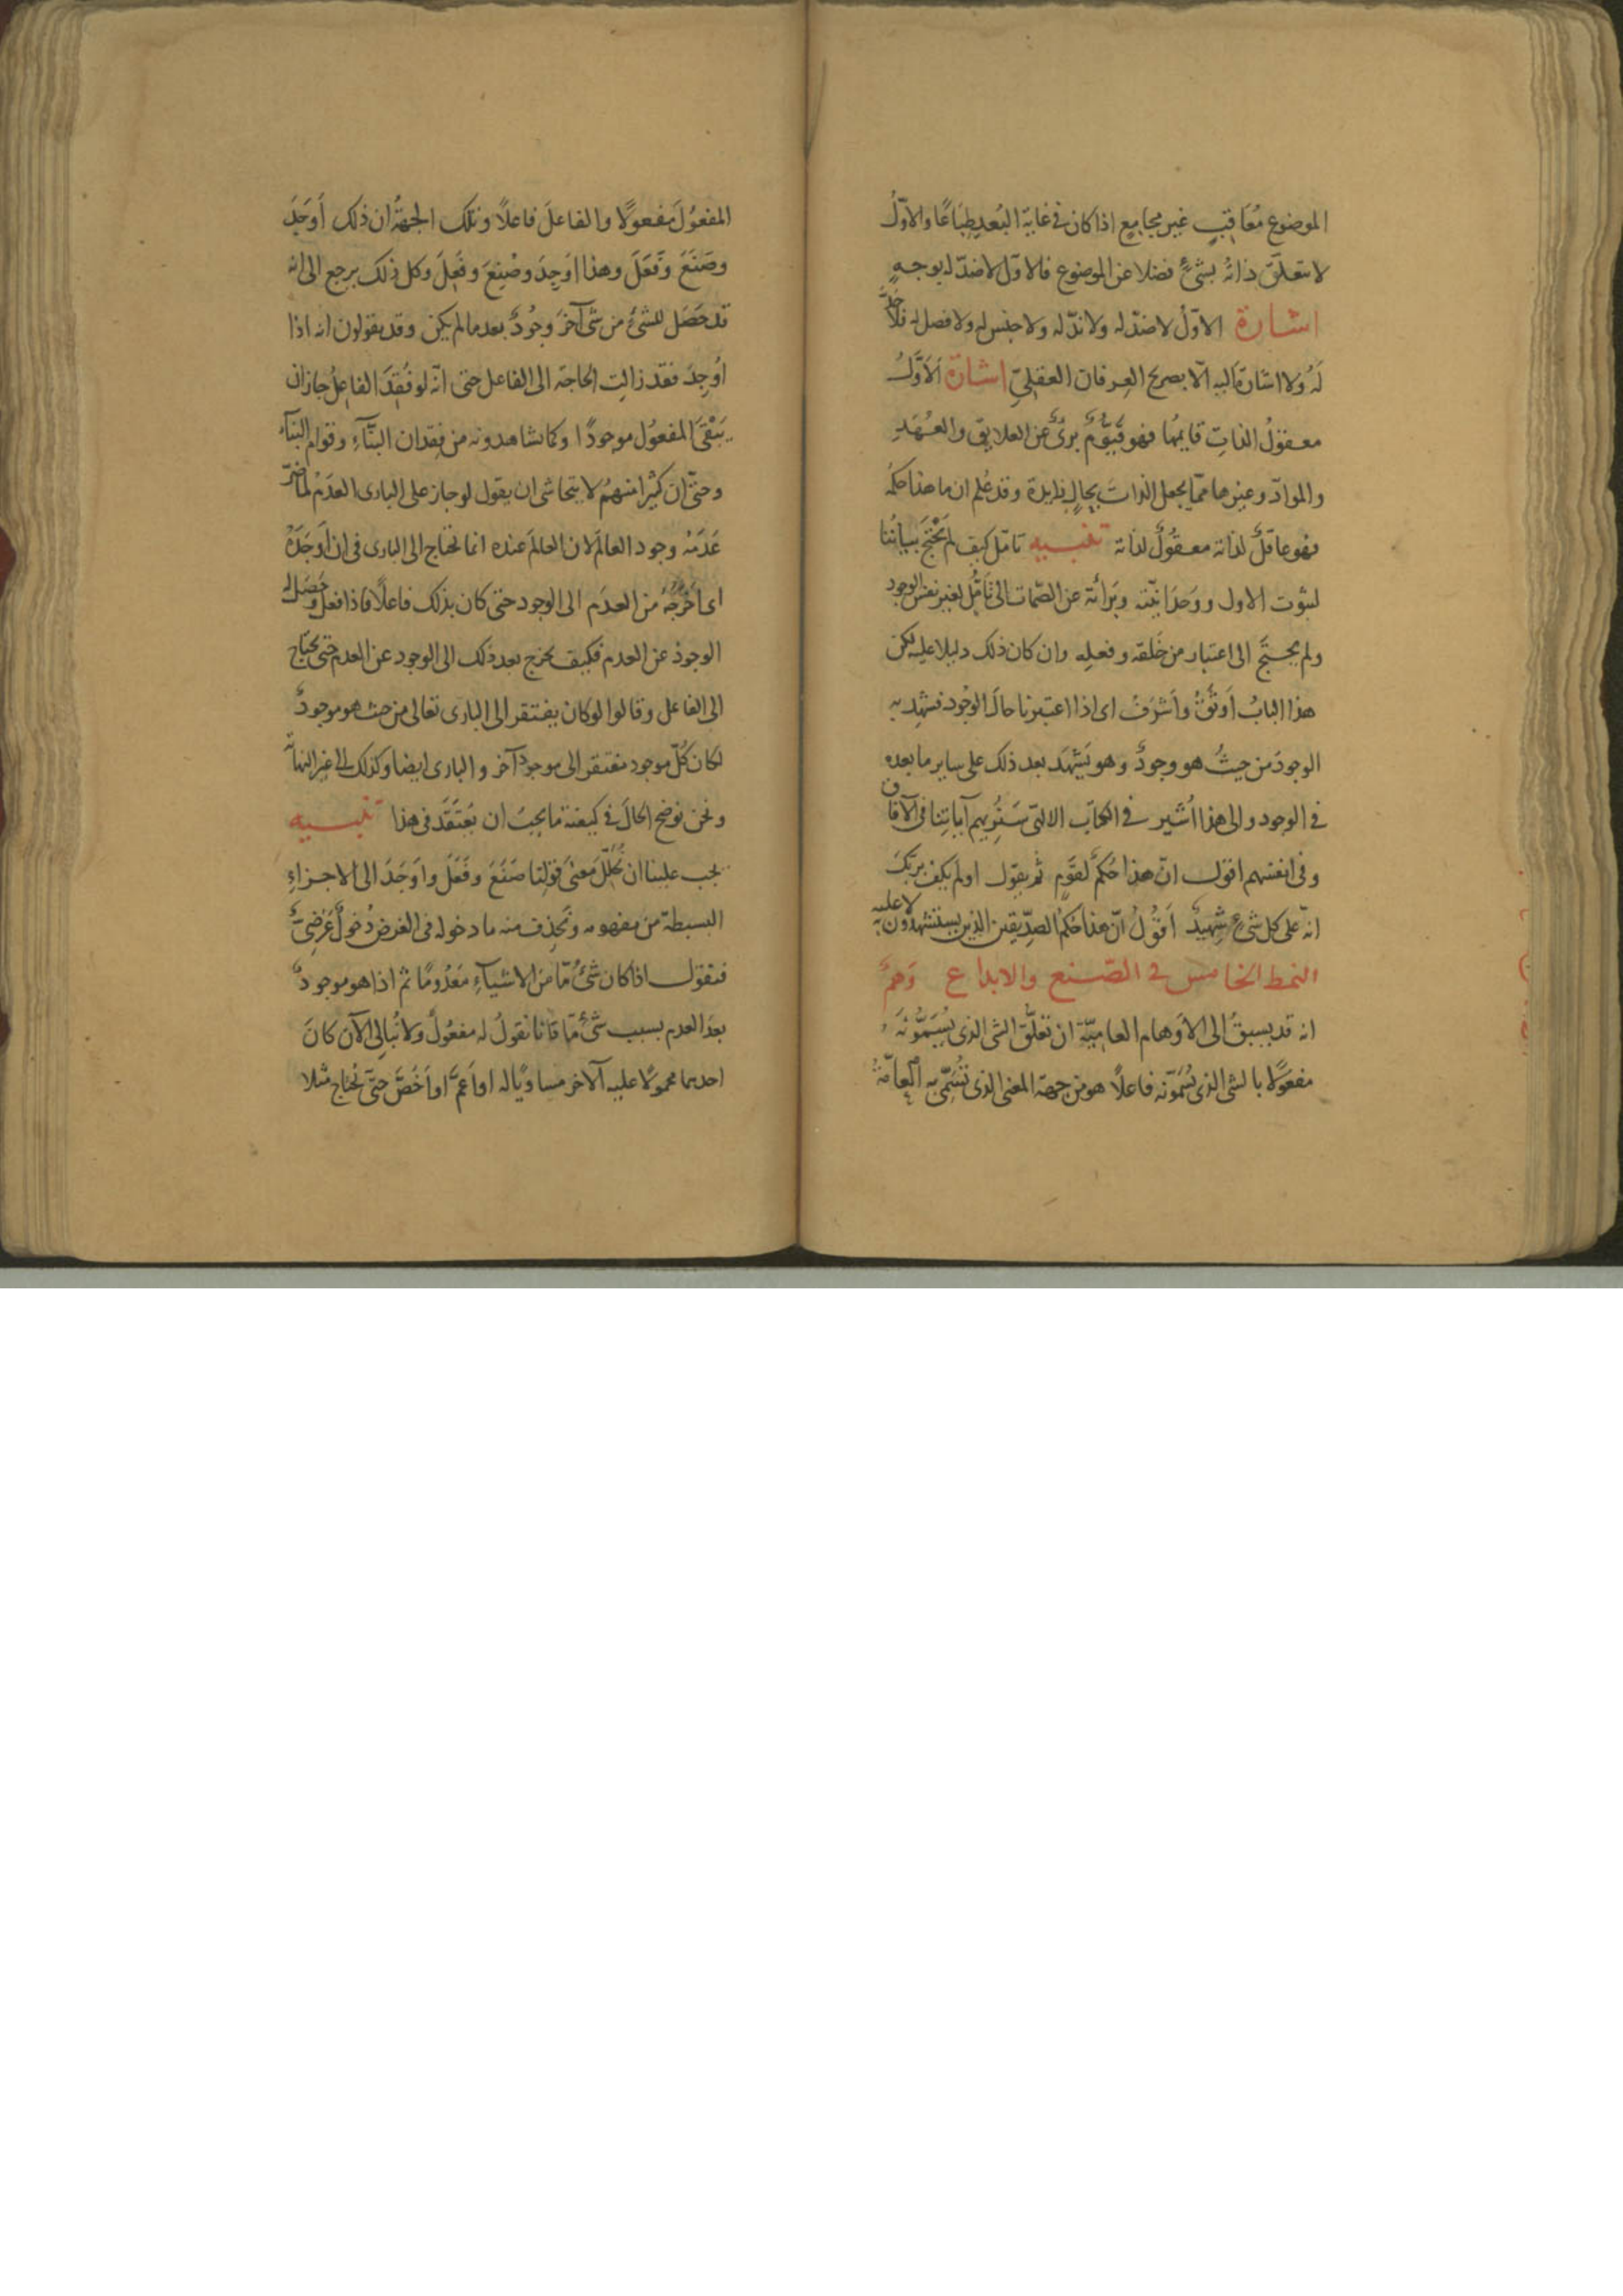 الموضوع مُعَاقِبٍ غير مجامع اذا كان فى غاية البُعد طِبَاعًا والاوّلُ
لا تتعلّق ذاتُه بشىءٍ فضلا عن الموضوع فالاوّل لا ضدّ له بوجهٍ
اشارة الاوّل لا ضدّ له ولا ندّ له ولا جنس له ولا فصل له فلا حَدَّ
لَهُ ولا اشارة اليه الّا بصريح العِرفان العقلىّ اشارة الاَوّلُ
معقولُ الذاتِ قايمُها فهو قَيّومٌ برىءٌ عن العلايق والعُهَدِ
والموادّ وغيرها ممّا يجعل الذات بحالٍ زايدة وقد عُلم ان ما هذا حكمُه
فهو عاقلٌ لذاته معقولٌ لذاته تنبيه تامّل كيف لم يَحْتَجْ بيانُنا
لثبوت الاول ووَحدَانيّته وبَرَائَته عن الصّمات الى تَأمُّلٍ لغير نفس الوجود
ولم يحتَجْ الى اعتبار من خَلقه وفعلِه وان كان ذلك دليلا عليه لكن
هذا البابُ اَوثَقُ واَشرَفُ اى اذا اعتبرنا حالَ الوجُود فشهِد به
الوجودُ من حيثُ هو وجودٌ وهو يَشهَد بعد ذلك على ساير ما بعده
فى الوجود والى هذا اُشير فى الكتاب الالهىّ سَنُرِيهم آياتِنا فى الآفاق
وفى انفسهم اقول انّ هذا حُكمٌ لقَومٍ ثم يقول اولم يكف بربّكَ
انّه على كل شىءٍ شهيدٌ اَقُولُ انّ هذا حُكمُ الصِدّيقين الذين يستشهدُون به لا عليه
النمط الخامس فى الصّنع والابداع وَهمٌ
انه قد يسبقُ الى الاَوهام العامِيّة ان تعلّق الشى الذى يُسَمُّونَه
مفعوَلًا بالشى الذى يُسَمّونه فاعلًا هو من جهة المعنى الذى تُسَمّى به العامّةُ
المفعُولَ مَفعولًا والفاعلَ فاعلًا وتلك الجهةُ ان ذلك أَوجَدَ
وصَنَعَ وفَعَلَ وهذا اُوجِدَ وصُنِعَ وفُعِلَ وكل ذلك يرجع الى انه
قد حَصَل للشىء من شىء آخرَ وجُودٌ بعد ما لم يكن وقد يقولون انه اذا
اُوجِدَ فقد زالتِ الحاجة الى الفاعل حتى انّه لو فُقِدَ الفاعلُ جاز ان
يَبْقَىَ المفعُول موجودًا وكما يشاهدونه من فِقدان البَنّآءِ وقوام البنآء
وحتّى ان كثيرا منهُم لا يتحاشى ان يقول لو جاز على البارى العَدَمُ لما ضرّ
عَدَمُه وجود العالمَ لان العالمَ عنده انما احتاج الى البارى فى ان اَوجَدَهُ
اى اَخرَجَهُ من العدَم الى الوجود حتى كان بذلك فاعلًا فاذا فعل وحَصَل له
الوجودُ عن العدم فكيف يخرج بعد ذلك الى الوجود عن العدم حتى يحتاج
الى الفاعل وقالوا لو كان يفتقر الى البارى تعالى من حيث هو موجودٌ
لكان كُلّ موجود مفتقر الى موجود آخر والبارى ايضا وكذلك الى غير النهاية
ونحن نوضح الحالَ فى كيفيّة ما يجبُ ان يُعتَقَد فى هذا تنبيه
يجب علينا ان نُحلّلَ معنَى قولنا صَنَعَ وفَعَلَ واَوجَدَ الى الاجزاءِ
البسيطة من مفهومه ونحذِف منه ما دخوله فى الغرض دُخولٌ عَرَضِىٌّ
فنقول اذا كان شىءٌ مّا من الاشيآءِ مَعدُومًا ثم اذا هو موجودٌ
بعدَ العدم بسبب شىءٍ مّا فانا نقولُ له مفعُولٌ ولا نُبالى الآن كانَ
احدهما محمولًا عليه الآخر مساويًا له او اَعمَّ او اَخَصَّ حتّى نحتاج مثلا